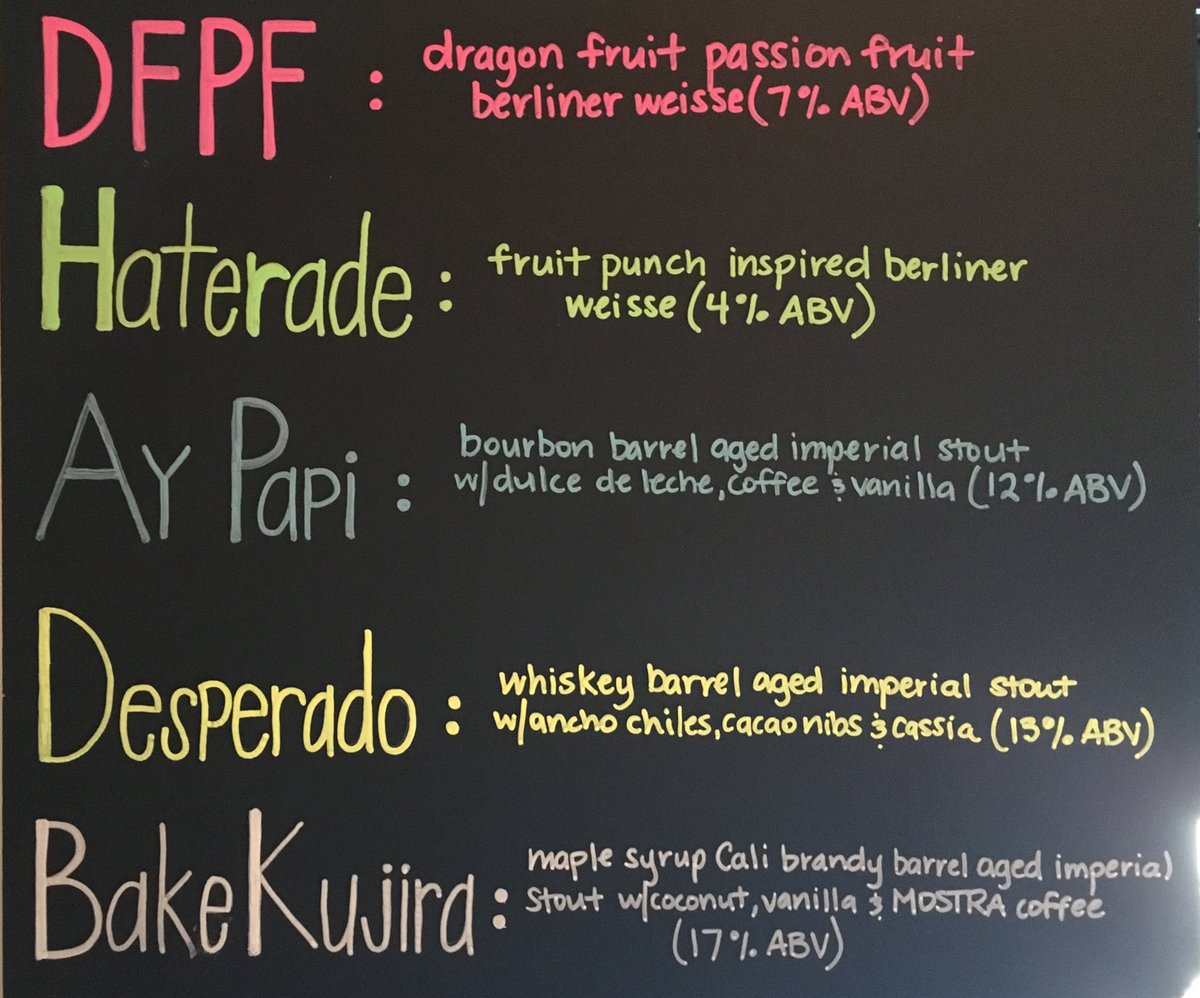 DFPF : dragon fruit passion fruit
berliner weisse (7% ABV)
Haterade : fruit punch inspired berliner
weisse (4% ABV)
Ay Papi : bourbon barrel aged imperial stout
w/dulce de leche, coffee & vanilla (12% ABV)
Desperado : whiskey barrel aged imperial stout
w/ancho chiles, cacao nibs & cassia (13% ABV)
BakeKujira : maple syrup Cali brandy barrel aged imperial
stout w/coconut, vanilla & MOSTRA coffee
(17% ABV)